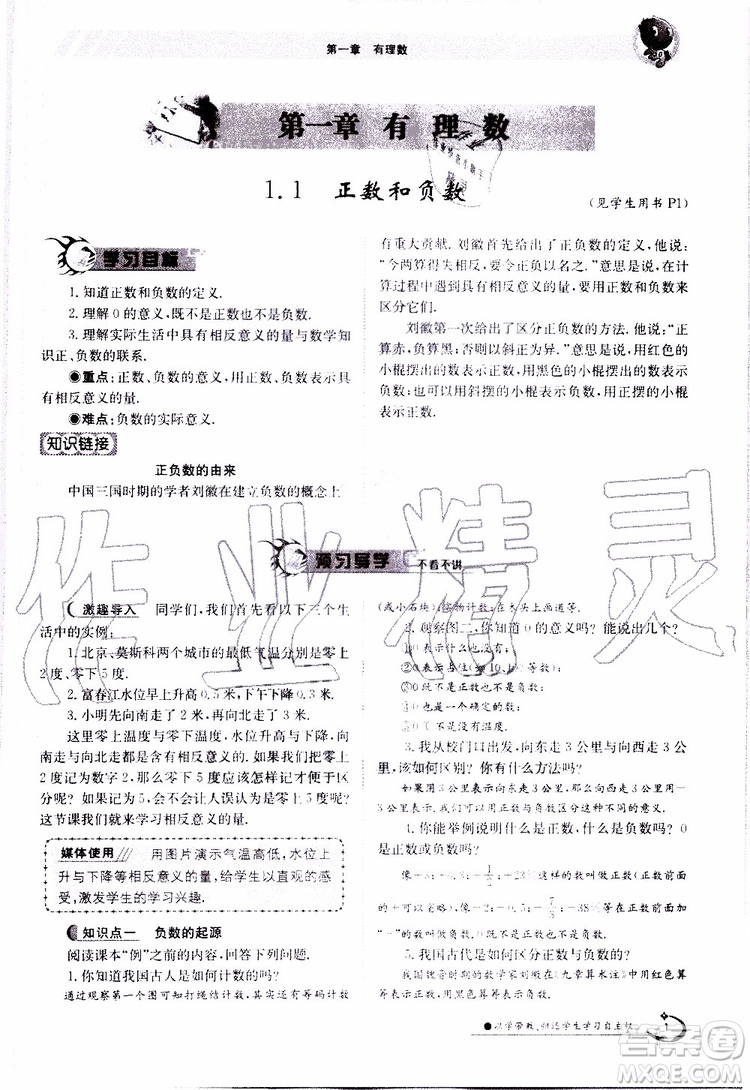 第一章 有理数
第一章 有 理 数
1.1 正数和负数
(见学生用书 P1)
学习目标
1. 知道正数和负数的定义.
2. 理解 0 的意义,既不是正数也不是负数.
3. 理解实际生活中具有相反意义的量与数学知
识正、负数的联系.
◉重点:正数、负数的意义,用正数、负数表示具
有相反意义的量.
◉难点:负数的实际意义.
知识链接
正负数的由来
中国三国时期的学者刘徽在建立负数的概念上
有重大贡献. 刘徽首先给出了正负数的定义,他说:
“今两算得失相反,要令正负以名之.”意思是说,在计
算过程中遇到具有相反意义的量,要用正数和负数来
区分它们.
刘徽第一次给出了区分正负数的方法. 他说:“正
算赤,负算黑;否则以斜正为异.”意思是说,用红色的
小棍摆出的数表示正数,用黑色的小棍摆出的数表示
负数;也可以用斜摆的小棍表示负数,用正摆的小棍
表示正数.
预习导学 不看不讲
激趣导入 同学们,我们首先看以下三个生
活中的实例:
1. 北京、莫斯科两个城市的最低气温分别是零上
2 度、零下 5 度.
2. 富春江水位早上升高 0.5 米,下午下降 0.3 米.
3. 小明先向南走了 2 米,再向北走了 3 米.
这里零上温度与零下温度、水位上升与下降、向
南走与向北走都是含有相反意义的量. 我们能将零上
2 度记为数字 2,那么零下 5 度能记为数字 5 以示区
分了吗? 记为 5,会不会让人误认为是零上 5 度呢?
这节课我们就来学习相反意义的量.
媒体使用 用图片演示气温高低,水位上
升与下降等相反意义的量,给学生以直观的感
受,激发学生的学习兴趣.
知识点一 负数的起源
阅读课本“例”之前的内容,回答下列问题.
1. 你知道我国古人是如何计数的吗?
通过观察第一个图可知打绳结计数,还有等码计数
(或小石块),实物计数;在木头上画道等.
2. 观察图二,你知道 0 的意义吗? 能说出几个?
①0 表示没有;
②0 表示占位(如 10,
③0 既不是正数也不是负数;
④0 也是一个确定的数;
3. 我从校门口出发,向东走 3 公里与向西走 3 公
里,该如何区别? 你有什么方法吗?
4. 你能举例说明什么是正数,什么是负数吗? 0
是正数吗?
5. 我国古代是如何区分正数与负数的吗?
我国魏晋时期的数学家刘徽在《九章算术注》中用红色算
筹表示正数,用黑色算筹表示负数.
1
作业精灵
答案圈